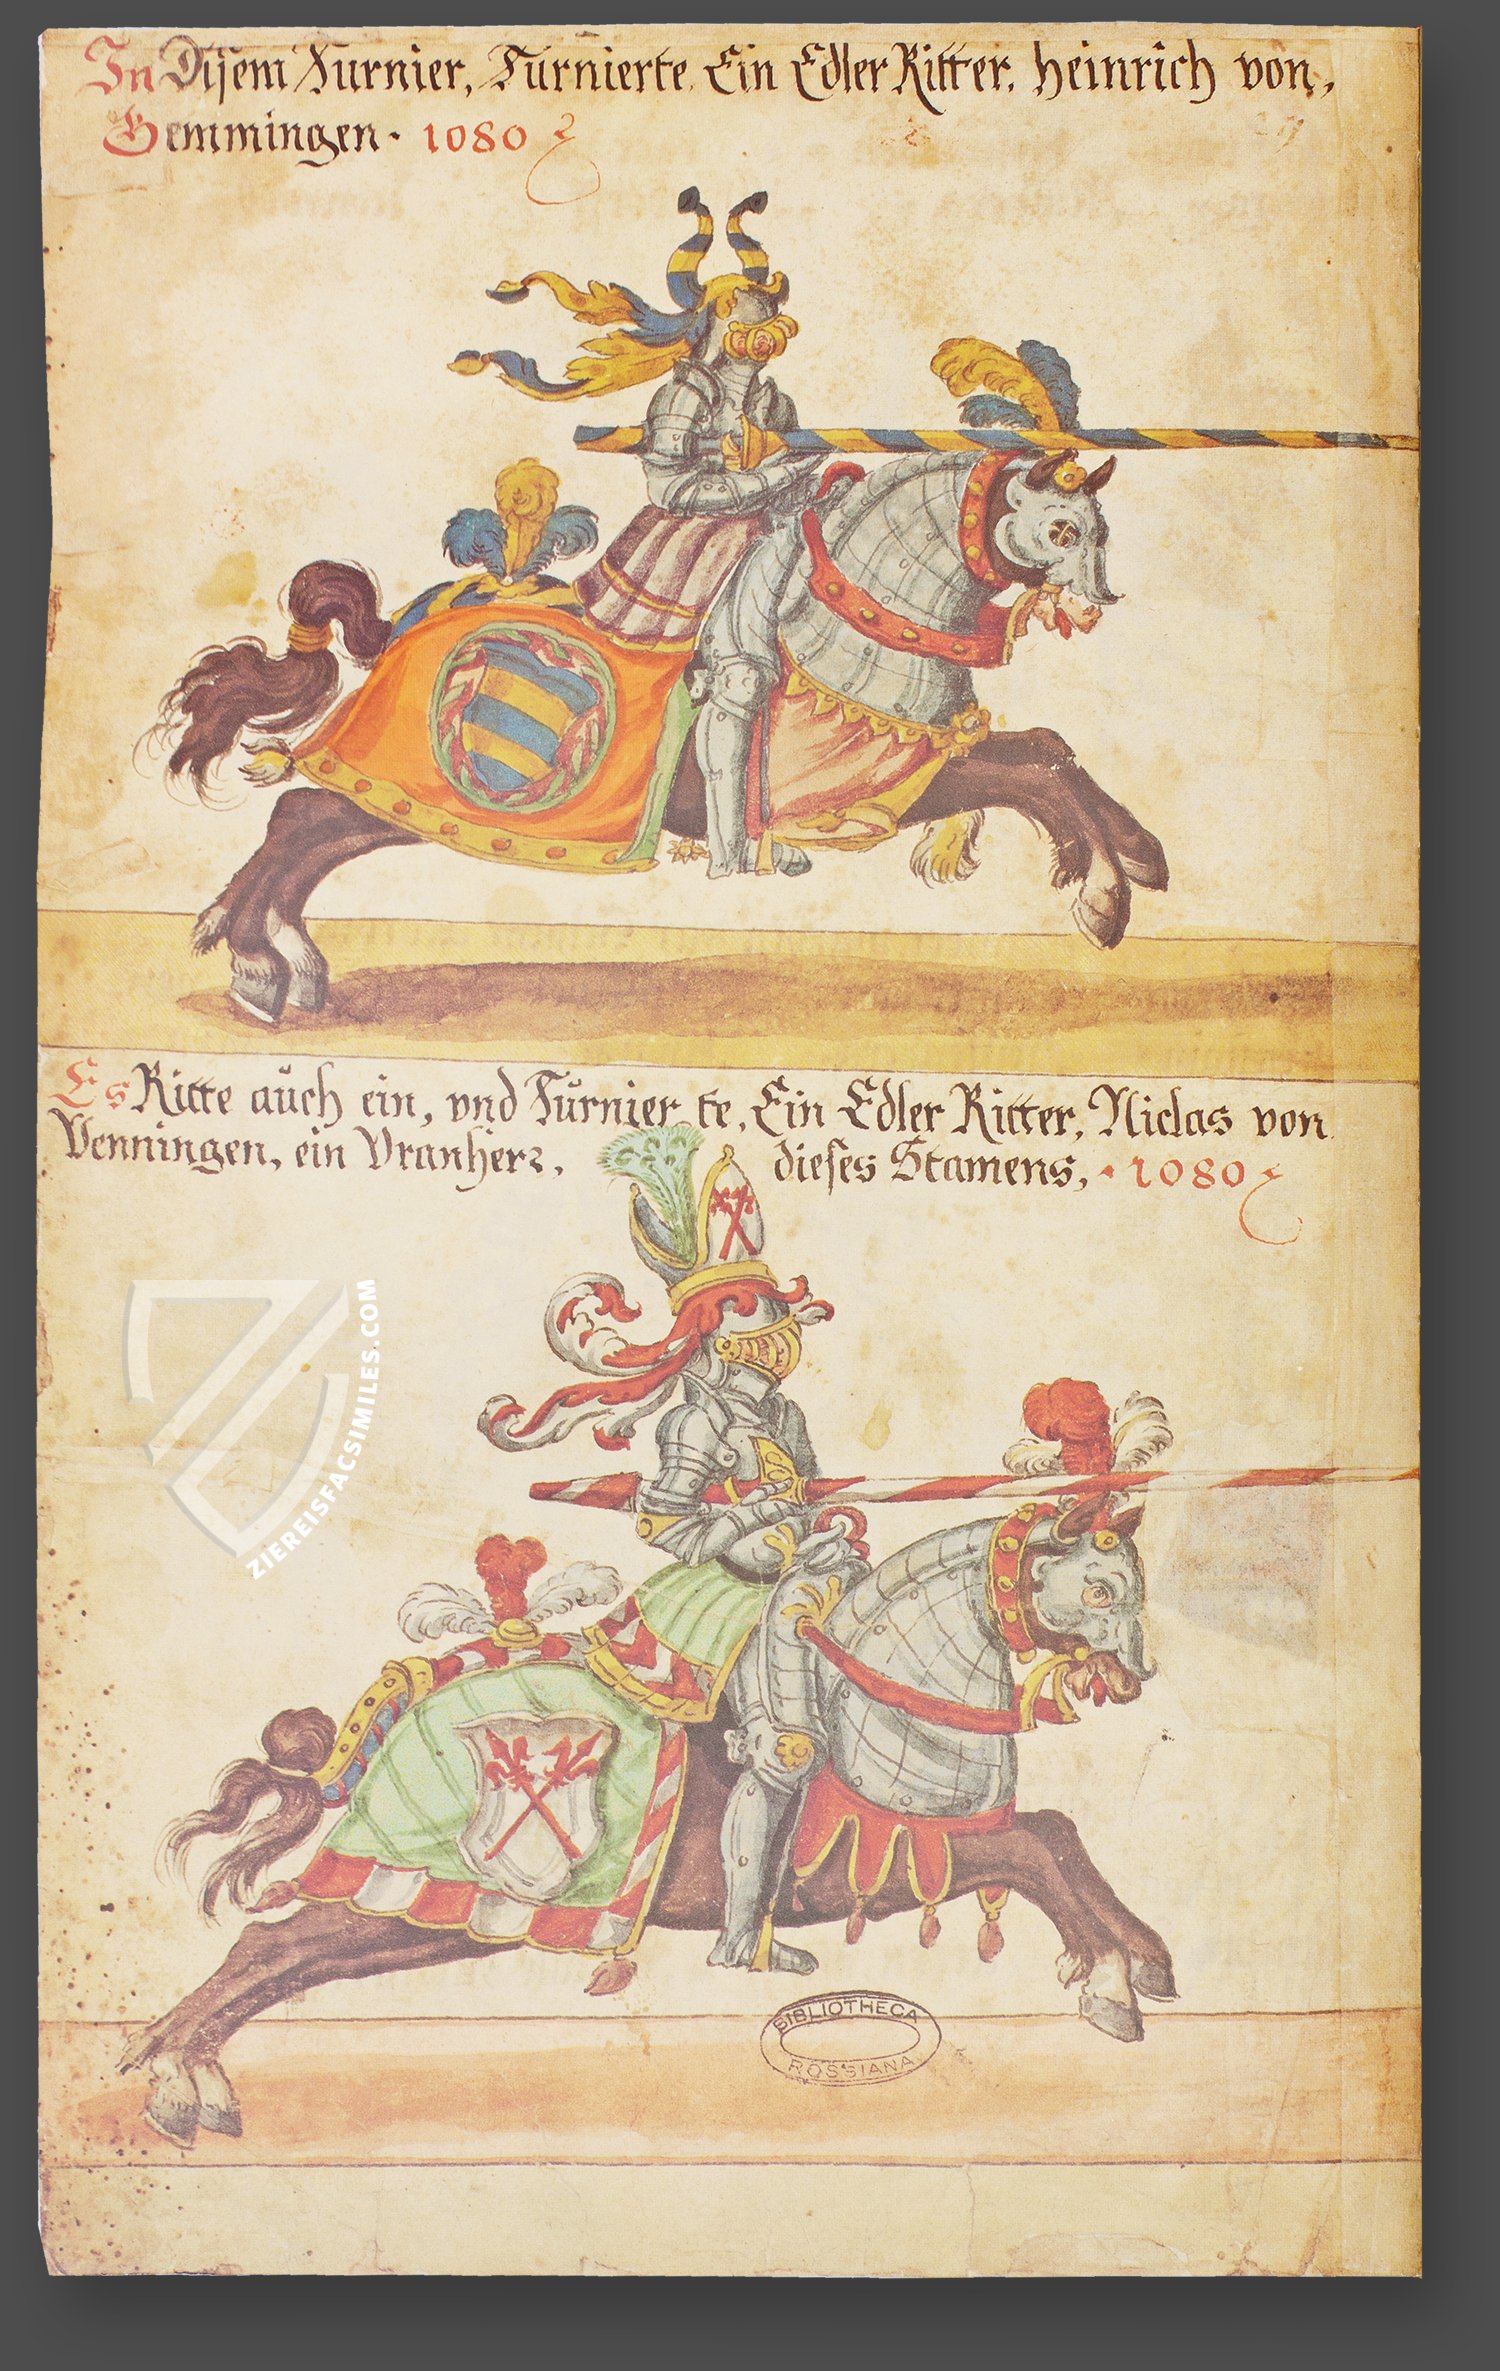 In Disem Turnier, Turnierte, Ein Edler Ritter, Heinrich von,
Gemmingen · 1080
Es Ritte aüch ein, vnd Turnierte, Ein Edler Ritter, Niclas von
Venningen, ein Vranherz, dieses Stamens, · 1080
ZIEREISFACSIMILES.COM
BIBLIOTHECA
ROSSIANA